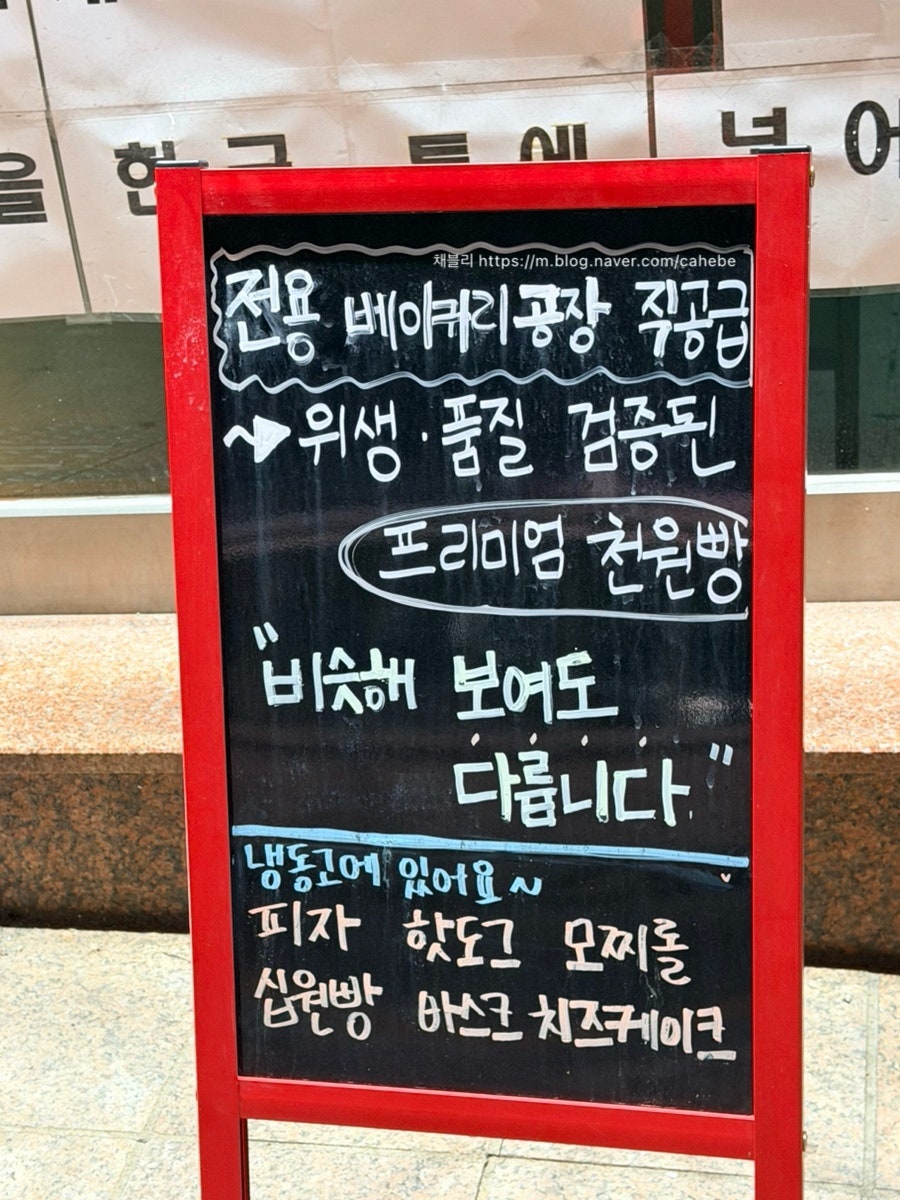 을 한국 틀에 넣어
채블리 https://m.blog.naver.com/cahebe
전용 베이커리 공장 직공급
위생·품질 검증된
프리미엄 천원빵
"비슷해 보여도
다릅니다"
냉동고에 있어요~
피자 핫도그 모찌롤
십원빵 바스크치즈케이크